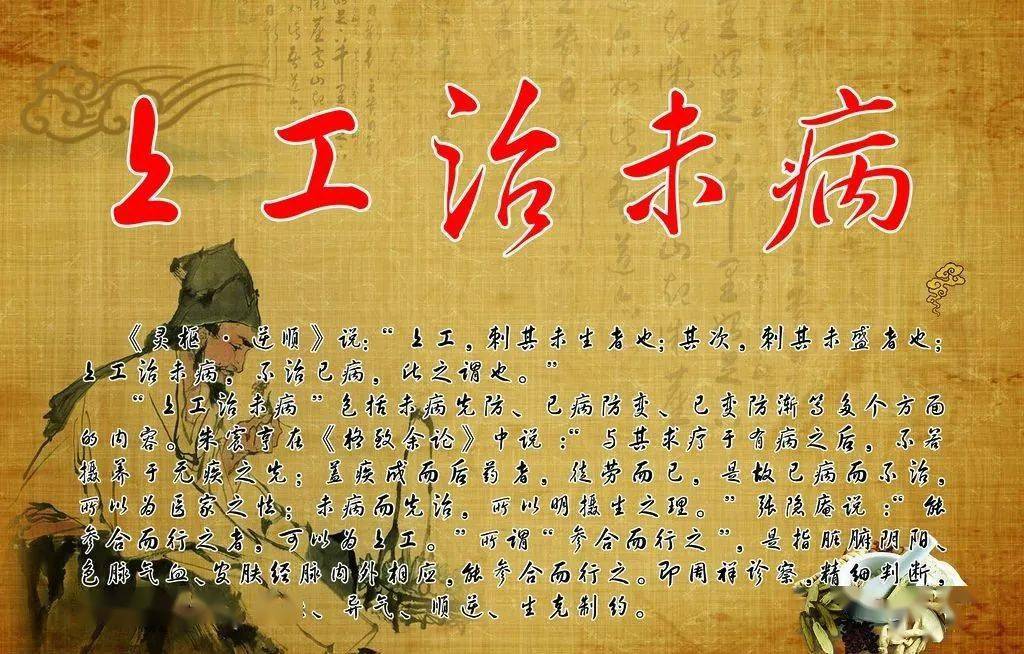 上工治未病
《灵枢·逆顺》说:“上工,刺其未生者也;其次,刺其未盛者也;
上工治未病,不治已病,此之谓也。”
“上工治未病”包括未病先防、已病防变、已变防渐等多个方面
的内容。朱震亨在《格致余论》中说:“与其求疗于有病之后,不若
摄养于无疾之先;盖疾成而后药者,徒劳而已,是故已病而不治,
所以为医家之怯;未病而先治,所以明摄生之理。” 张隐庵说:“能
参合而行之者,可以为上工。”所谓“参合而行之”,是指脏腑阴阳、
色脉气血、皮肤经脉内外相应,能参合而行之。即周祥诊察,精细判断,
、异气、顺逆、生克制约。